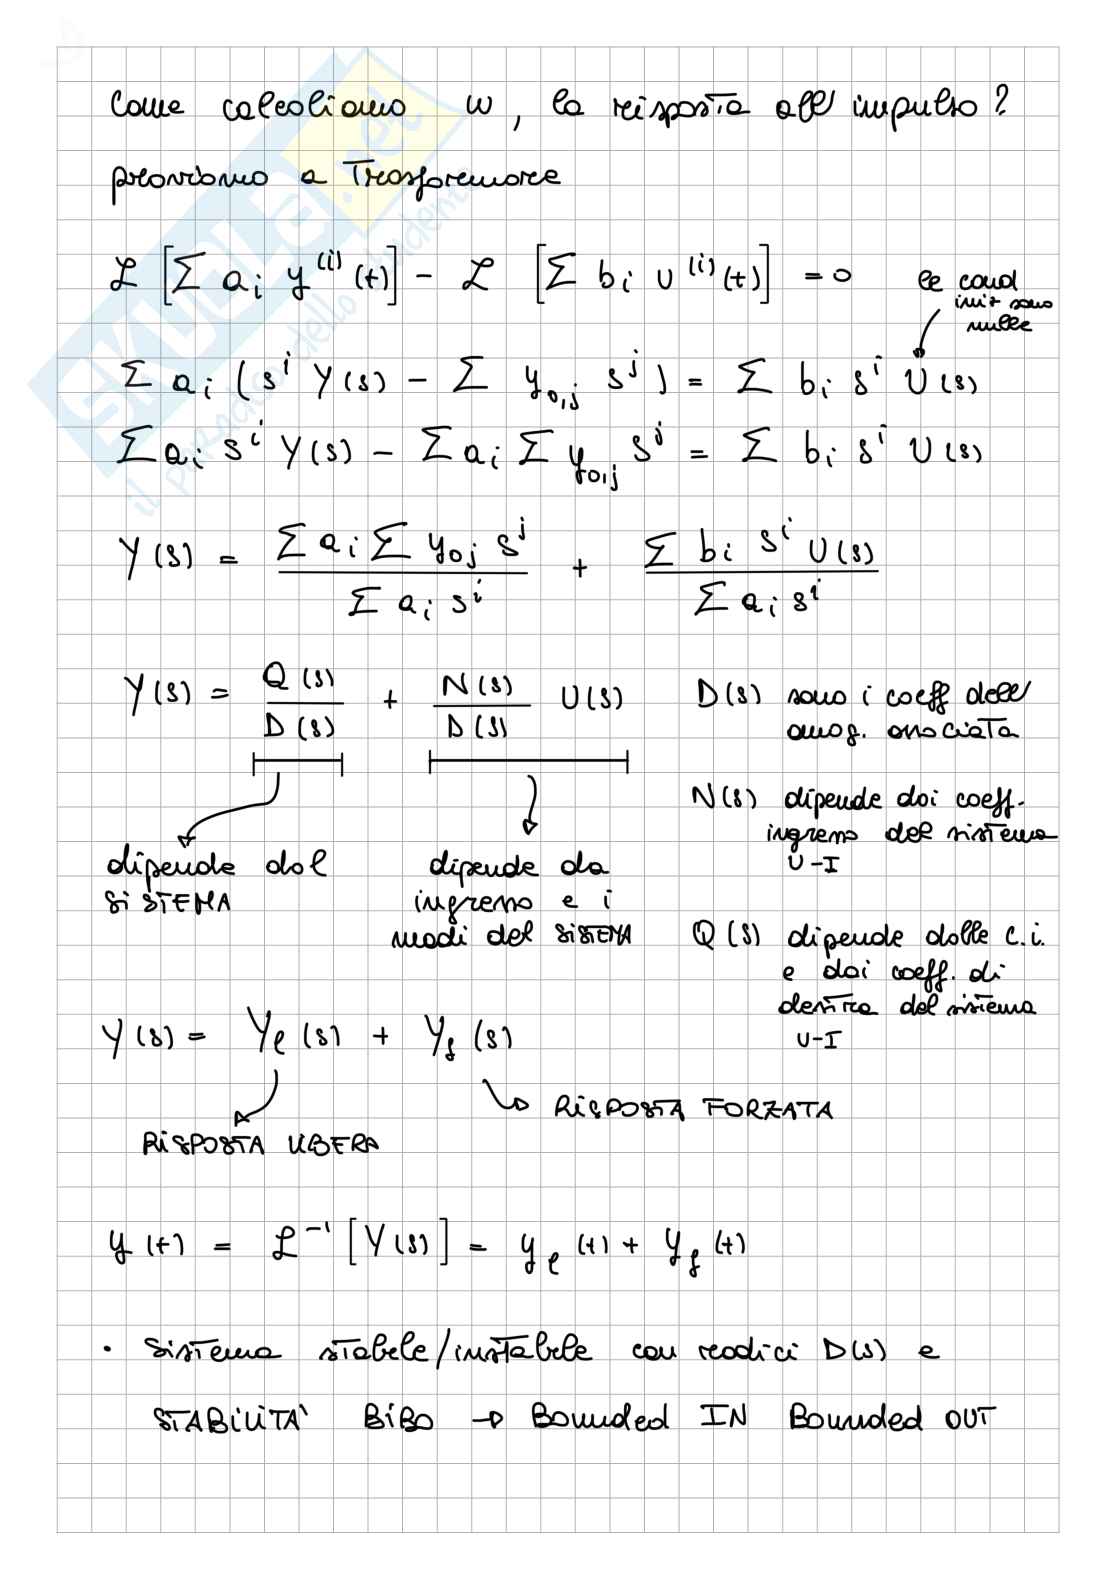 Come calcoliamo w, la risposta all'impulso?
proviamo a Trasformare
ℒ [Σ aᵢ y⁽ⁱ⁾(t)] - ℒ [Σ bᵢ u⁽ⁱ⁾(t)] = 0
le cond
init sono
nulle
Σ aᵢ (sⁱ Y(s) - Σ y₀,ⱼ sʲ) = Σ bᵢ sⁱ U(s)
Σ aᵢ sⁱ Y(s) - Σ aᵢ Σ y₀,ⱼ sʲ = Σ bᵢ sⁱ U(s)
Y(s) = (Σ aᵢ Σ y₀ⱼ sʲ) / (Σ aᵢ sⁱ) + (Σ bᵢ sⁱ U(s)) / (Σ aᵢ sⁱ)
Y(s) = Q(s) / D(s) + N(s) / D(s) U(s)
dipende dal
SISTEMA
dipende da
ingresso e i
modi del SISTEMA
D(s) sono i coeff dell'
omog. associata
N(s) dipende dai coeff.
ingresso del sistema
U-I
Q(s) dipende dalle c.i.
e dai coeff. di
destra del sistema
U-I
Y(s) = Yₗ(s) + Y_f(s)
RISPOSTA FORZATA
RISPOSTA LIBERA
y(t) = ℒ⁻¹ [Y(s)] = yₗ(t) + y_f(t)
• Sistema stabile/instabile con radici D(s) e
STABILITA' BIBO → Bounded IN Bounded OUT
SKUOLA.net
il paradiso dello studente